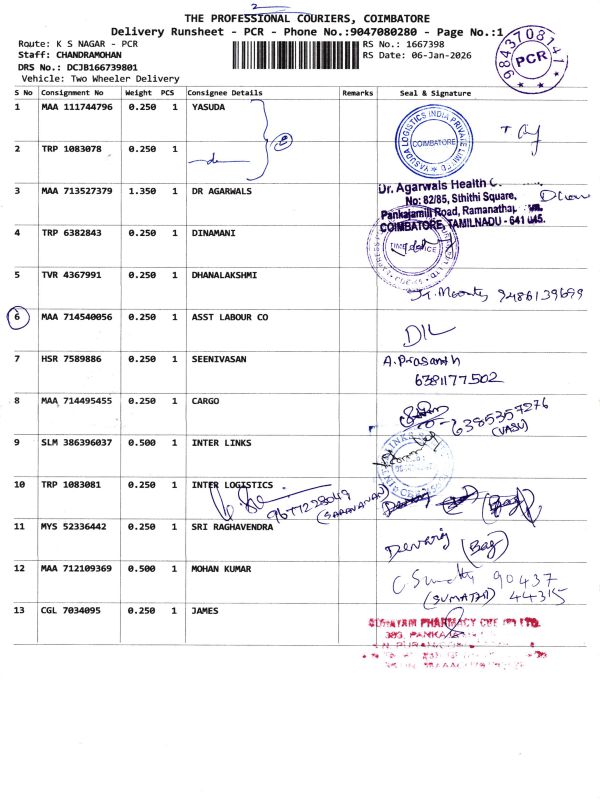 2
THE PROFESSIONAL COURIERS, COIMBATORE
Delivery Runsheet - PCR - Phone No.:9047080280 - Page No.:1
Route: K S NAGAR - PCR
RS No.: 1667398
Staff: CHANDRAMOHAN
RS Date: 06-Jan-2026
DRS No.: DCJB166739801
Vehicle: Two Wheeler Delivery
9843708147
PCR
S No Consignment No Weight PCS Consignee Details Remarks Seal & Signature
1 MAA 111744796 0.250 1 YASUDA
YASUDA LOGISTICS INDIA PRIVATE LIMITED
COIMBATORE
2 TRP 1083078 0.250 1
2
3 MAA 713527379 1.350 1 DR AGARWALS
Dr. Agarwals Health
No: 82/85, Sthithi Square,
Pankajamill Road, Ramanatha
COIMBATORE, TAMILNADU - 641 045.
4 TRP 6382843 0.250 1 DINAMANI
5 TVR 4367991 0.250 1 DHANALAKSHMI
9486139699
6 MAA 714540056 0.250 1 ASST LABOUR CO
7 HSR 7589886 0.250 1 SEENIVASAN
A.Prasanth
6381177502
8 MAA 714495455 0.250 1 CARGO
6385357276
(VASU)
9 SLM 386396037 0.500 1 INTER LINKS
10 TRP 1083081 0.250 1 INTER LOGISTICS
9677223049
(SARAVANAN)
(Bag)
11 MYS 52336442 0.250 1 SRI RAGHAVENDRA
Devaraj (Bag)
12 MAA 712109369 0.500 1 MOHAN KUMAR
90437
(SUMATHI) 44315
13 CGL 7034095 0.250 1 JAMES
PHARMACY